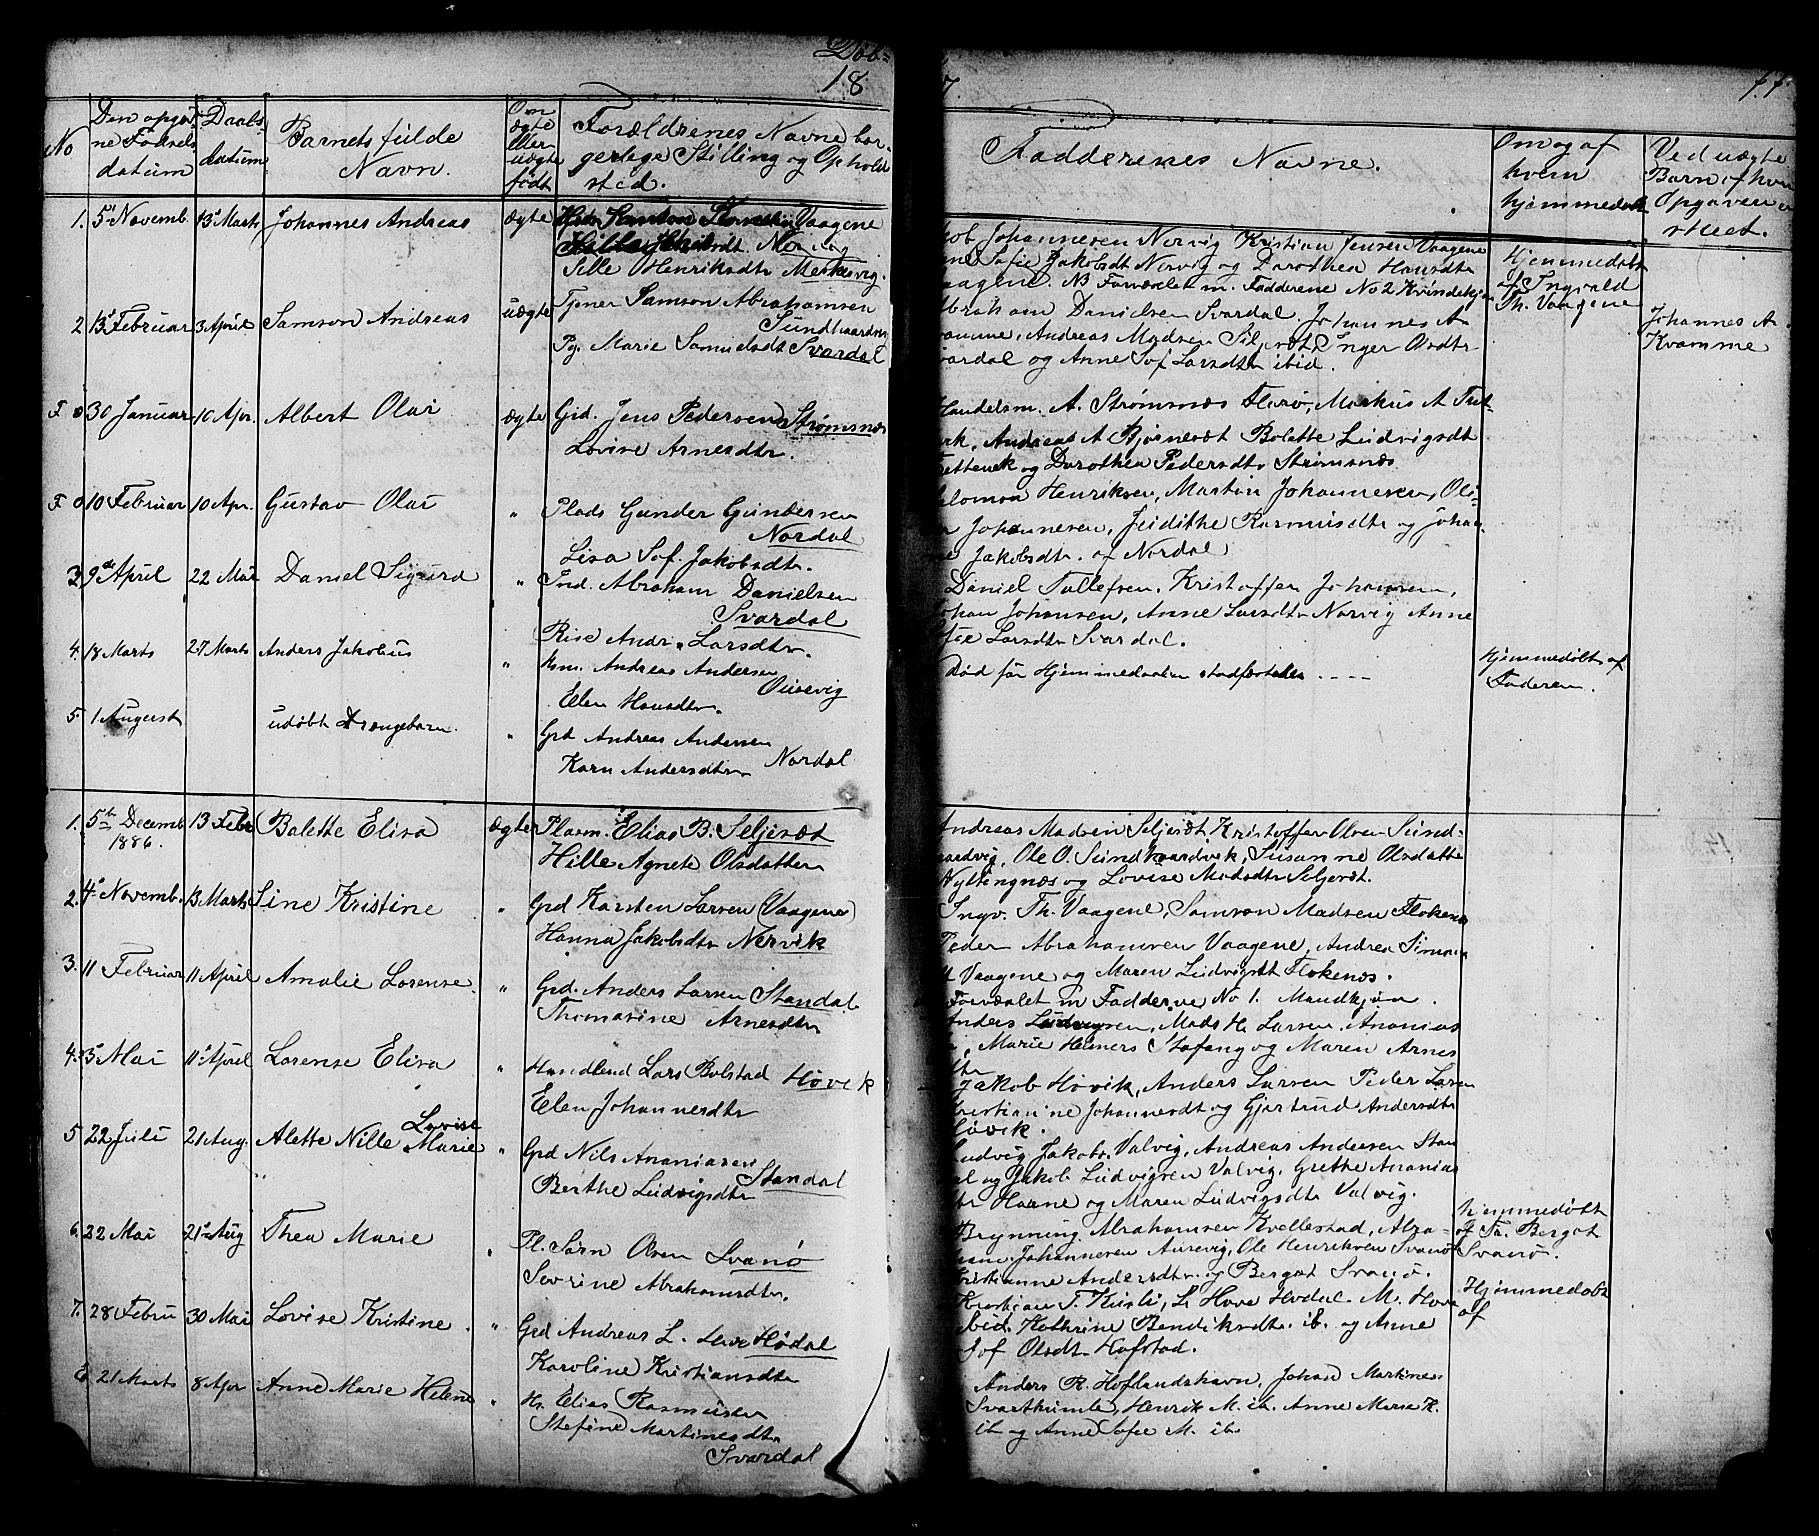 Döb-
18 7 77
No
Den opgiv-
ne Födsels
datum
Daabs-
datum
Barnets fulde
Navn.
Om
ægte
eller
uægte
födt
Forældrenes Navne bor-
gerlege Stilling og Opholds
sted.
Fadderenes Navne.
Om og af
hvem
hjemmedøbt
Ved uægte
Barn af hvem
Opgaven er
skeet.
1. 5 Novemb 13 Marts Johannes Andreas ægte Vaagene
Sille Henriksdtr Merkevig.
Johannesen Nervig Kristian Jensen Vaagene
Sofie Jakobsdt Nervig og Dorothea Hansdtr
NB Forældre m. Fadderne No 2 Kvindekjøn
Hjemmedøbt
af Ingvald
Th. Vaagene
2 13 Februar 3 April Samson Andreas uægte Tjener Samson Abrahamsen
Sundhaardvig
Pg. Marie Samuelsdt Svardal
Abraham Danielsen Svardal. Johannes A
Andreas Madsen Inger Olsdtr
Svardal og Anne Sof Larsdtr ibid.
Johannes A.
Kvamme
F 30 Januar 10 Apr. Albert Olai ægte Grd. Jens Pedersen Strømsnæs
Lovise Arnesdtr.
Handelsm. A. Strømsnæs Florø, Markus A
Andreas A Bolette Ludvigsdt
og Dorothea Pedersdtr Strømsnæs.
F 10 Februar 10 Apr. Gustav Olai " Plads Gunder Gundersen
Nordal
Lisa Sof. Jakobsdtr.
Salomon Henriksen, Martin Johannesen, Oli-
Johannesen, Rasmusdtr og Johan-
ne Jakobsdtr. af Nordal
3 9de April 22 Mai Daniel Sigurd " Ind. Abraham Danielsen
Svardal
Larsdtr.
Daniel Tollefsen, Kristoffer Johannesen,
Johan Johansen, Anne Larsdtr Norvig Anne
Sofie Larsdtr Svardal.
4. 18 Marts 27 Marts Anders Jakobus " Andreas Andersen
Elen Hansdtr.
Död før Hjemmedaaben stadfæstedes
Hjemmedøbt af
Faderen.
5. 1 August udöbt Drengebarn. " Grd Andreas Andersen
Nordal
Karn Andersdtr
1. 5te Decemb 13 Febr Balette Elisa ægte Plasm. Elias B. Seljesæt
1886.
Hille Agnete Olsdatter
Andreas Madsen Seljesæt Kristoffer Olsen Sund-
Ole O. Sundhaardvik, Susanne Olsdatter
Nyttingnæs og Lovise Madsdtr Seljeset.
2. 4 Novemb. 13 Marts Sine Kristine " Grd Karsten Larsen (Vaagene)
Hanna Jakobsdtr Nervik
Ingv. Th. Vaagene, Samson Madsen Flokenæs
Peder Abrahamsen Vaagene, Andrea Simons
Vaagene og Maren Ludvigsdt Flokenæs.
m Fadderne No 1. Mandkjøn.
3. 11 Februar 11 April Amalie Lorense " Grd. Anders Larsen Standal
Thomasine Arnesdtr
Anders Ludvigsen, Mads H. Larsen, Ananias
Marie Heiners Stafang og Maren Arnes
4. 3 Mai 11 April Lorense Elisa " Handlend Lars Bolstad Høvik
Elen Johannesdtr
Jakob Høvik, Anders Larsen Peder Larsen
Johannesdt og Gjertrud Andersdtr
Høvik.
5 22 Juli 21 Aug. Alette Nille Lovise Marie " Grd Nils Ananiasen
Standal
Berthe Ludvigsdtr
Ludvig Jakobs. Valvig, Andreas Andersen Stan
dal og Jakob Ludvigsen Valvig, Grethe Ananias
Horne og Maren Ludvigsdtr Valvig.
6. 22 Mai 21 Aug Thea Marie " Pl. Sørn Olsen Svanø
Sevrine Abrahamsdtr.
Brynning Abrahamsen Kvellestad, Abra-
Johannesen Aurevig, Ole Henriksen Svanø
Kristianne Andersdtr. og Bergat Svanø.
hjemmedøbt
af Bergat
Svanø.
7. 28 Febru 30 Mai Lovise Kristine. " Grd Andreas L. Hove Hødal
Karoline Kristiansdtr
Kristian T. L. Hove Hødal. M. Hove
ibid. Kathrine Bendiksdtr. ib. og Anne
Sof Olsdt. Hofstad.
Hjemmedøbt
af
E. 21 Marts 8 Apr Anne Marie Helene " Hs. Elias Rasmusen
Stefine Martinesdtr
Svardal
Anders R. Hoflandshavn, Johan Martines
Svarthumle, Henrik M. ib. Anne Marie K.
ib og Anne Sofie M. ib.